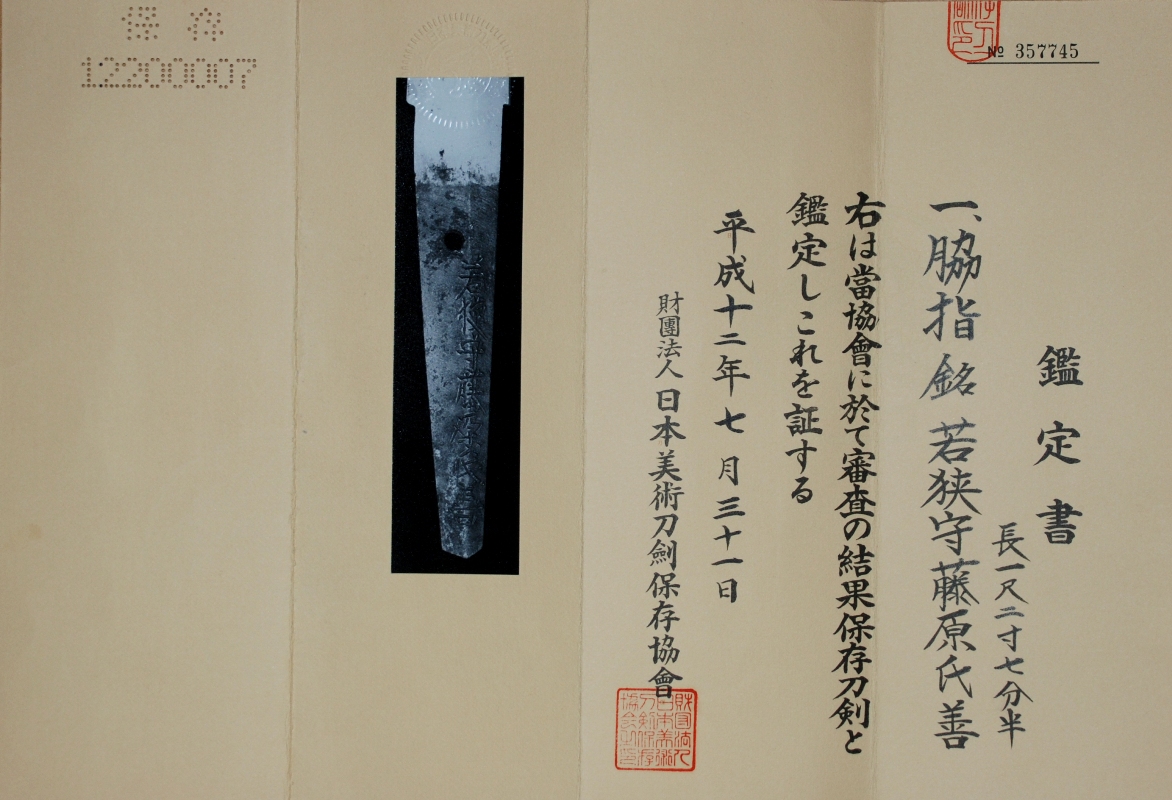 № 357745
鑑定書
長一尺二寸七分半
一、脇指 銘 若狭守藤原氏善
右は當協會に於て審査の結果保存刀剣と
鑑定しこれを証する
平成十二年七月三十一日
財團法人日本美術刀劍保存協會
財団法人
日本美術
刀剣保存
協会之印
若狭守藤原氏善
保存
12200007